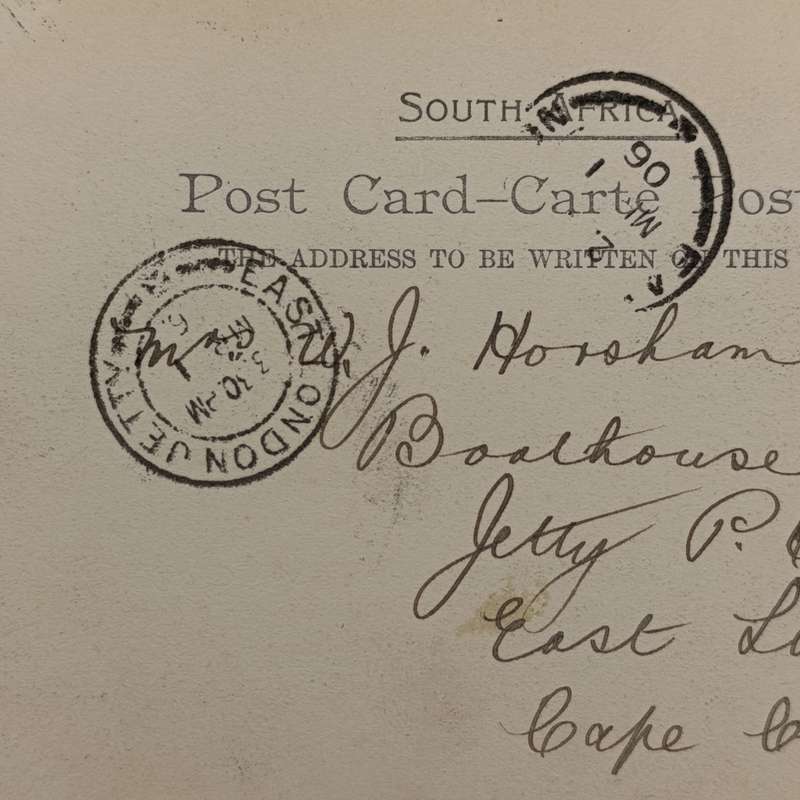 SOUTH AFRICA
POST CARD–CARTE POS
THE ADDRESS TO BE WRITTEN ON THIS
EAST LONDON JETTY
30 PM
06
Mr W. J. Horsham
Boathouse
Jetty P.
East Lo
Cape C